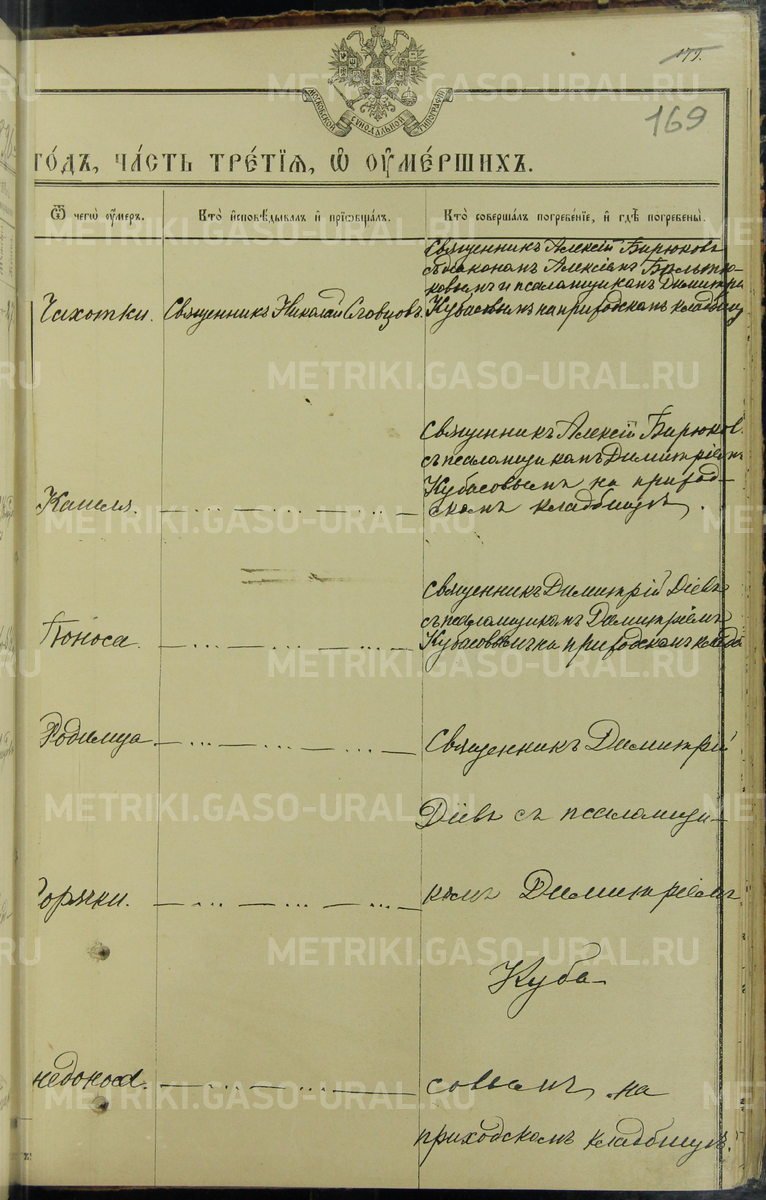 179.
169
МОСКОВСКОЙ СѴНОДАЛЬНОЙ ТИПОГРАФІИ
ГО́ДЪ, ЧА́СТЬ ТРЕ́ТІЯ, Ѡ҆ ОУ҆МЕ́РШИХЪ.
Ѿ чегѡ̀ оу҆́меръ.
Кто̀ и҆сповѣ́дывалъ и҆ прїѡбща́лъ.
Кто̀ соверша́лъ погребе́нїе, и҆ гдѣ̀ погребены̀.
Чахотки.
Священникъ Николай Словцовъ.
Священникъ Алексій Бирюковъ
съ діакономъ Алексіемъ
ковымъ и псаломщикомъ Димитрі
Кубасовымъ на приходскомъ кладбищ
Кашля.
Священникъ Алексій Бирюков
съ псаломщикомъ Димитріемъ
Кубасовымъ на приход-
скомъ кладбищѣ.
Поноса.
Священникъ Димитрій Діевъ
съ псаломщикомъ Димитріемъ
Кубасовымъ на приходскомъ кладб
Родимца
Священникъ Димитрій
Діевъ съ псаломщи-
Горячки.
комъ Димитріемъ
Куба-
недоноса.
совымъ на
приходскомъ кладбищѣ.
METRIKI.GASO-URAL.RU